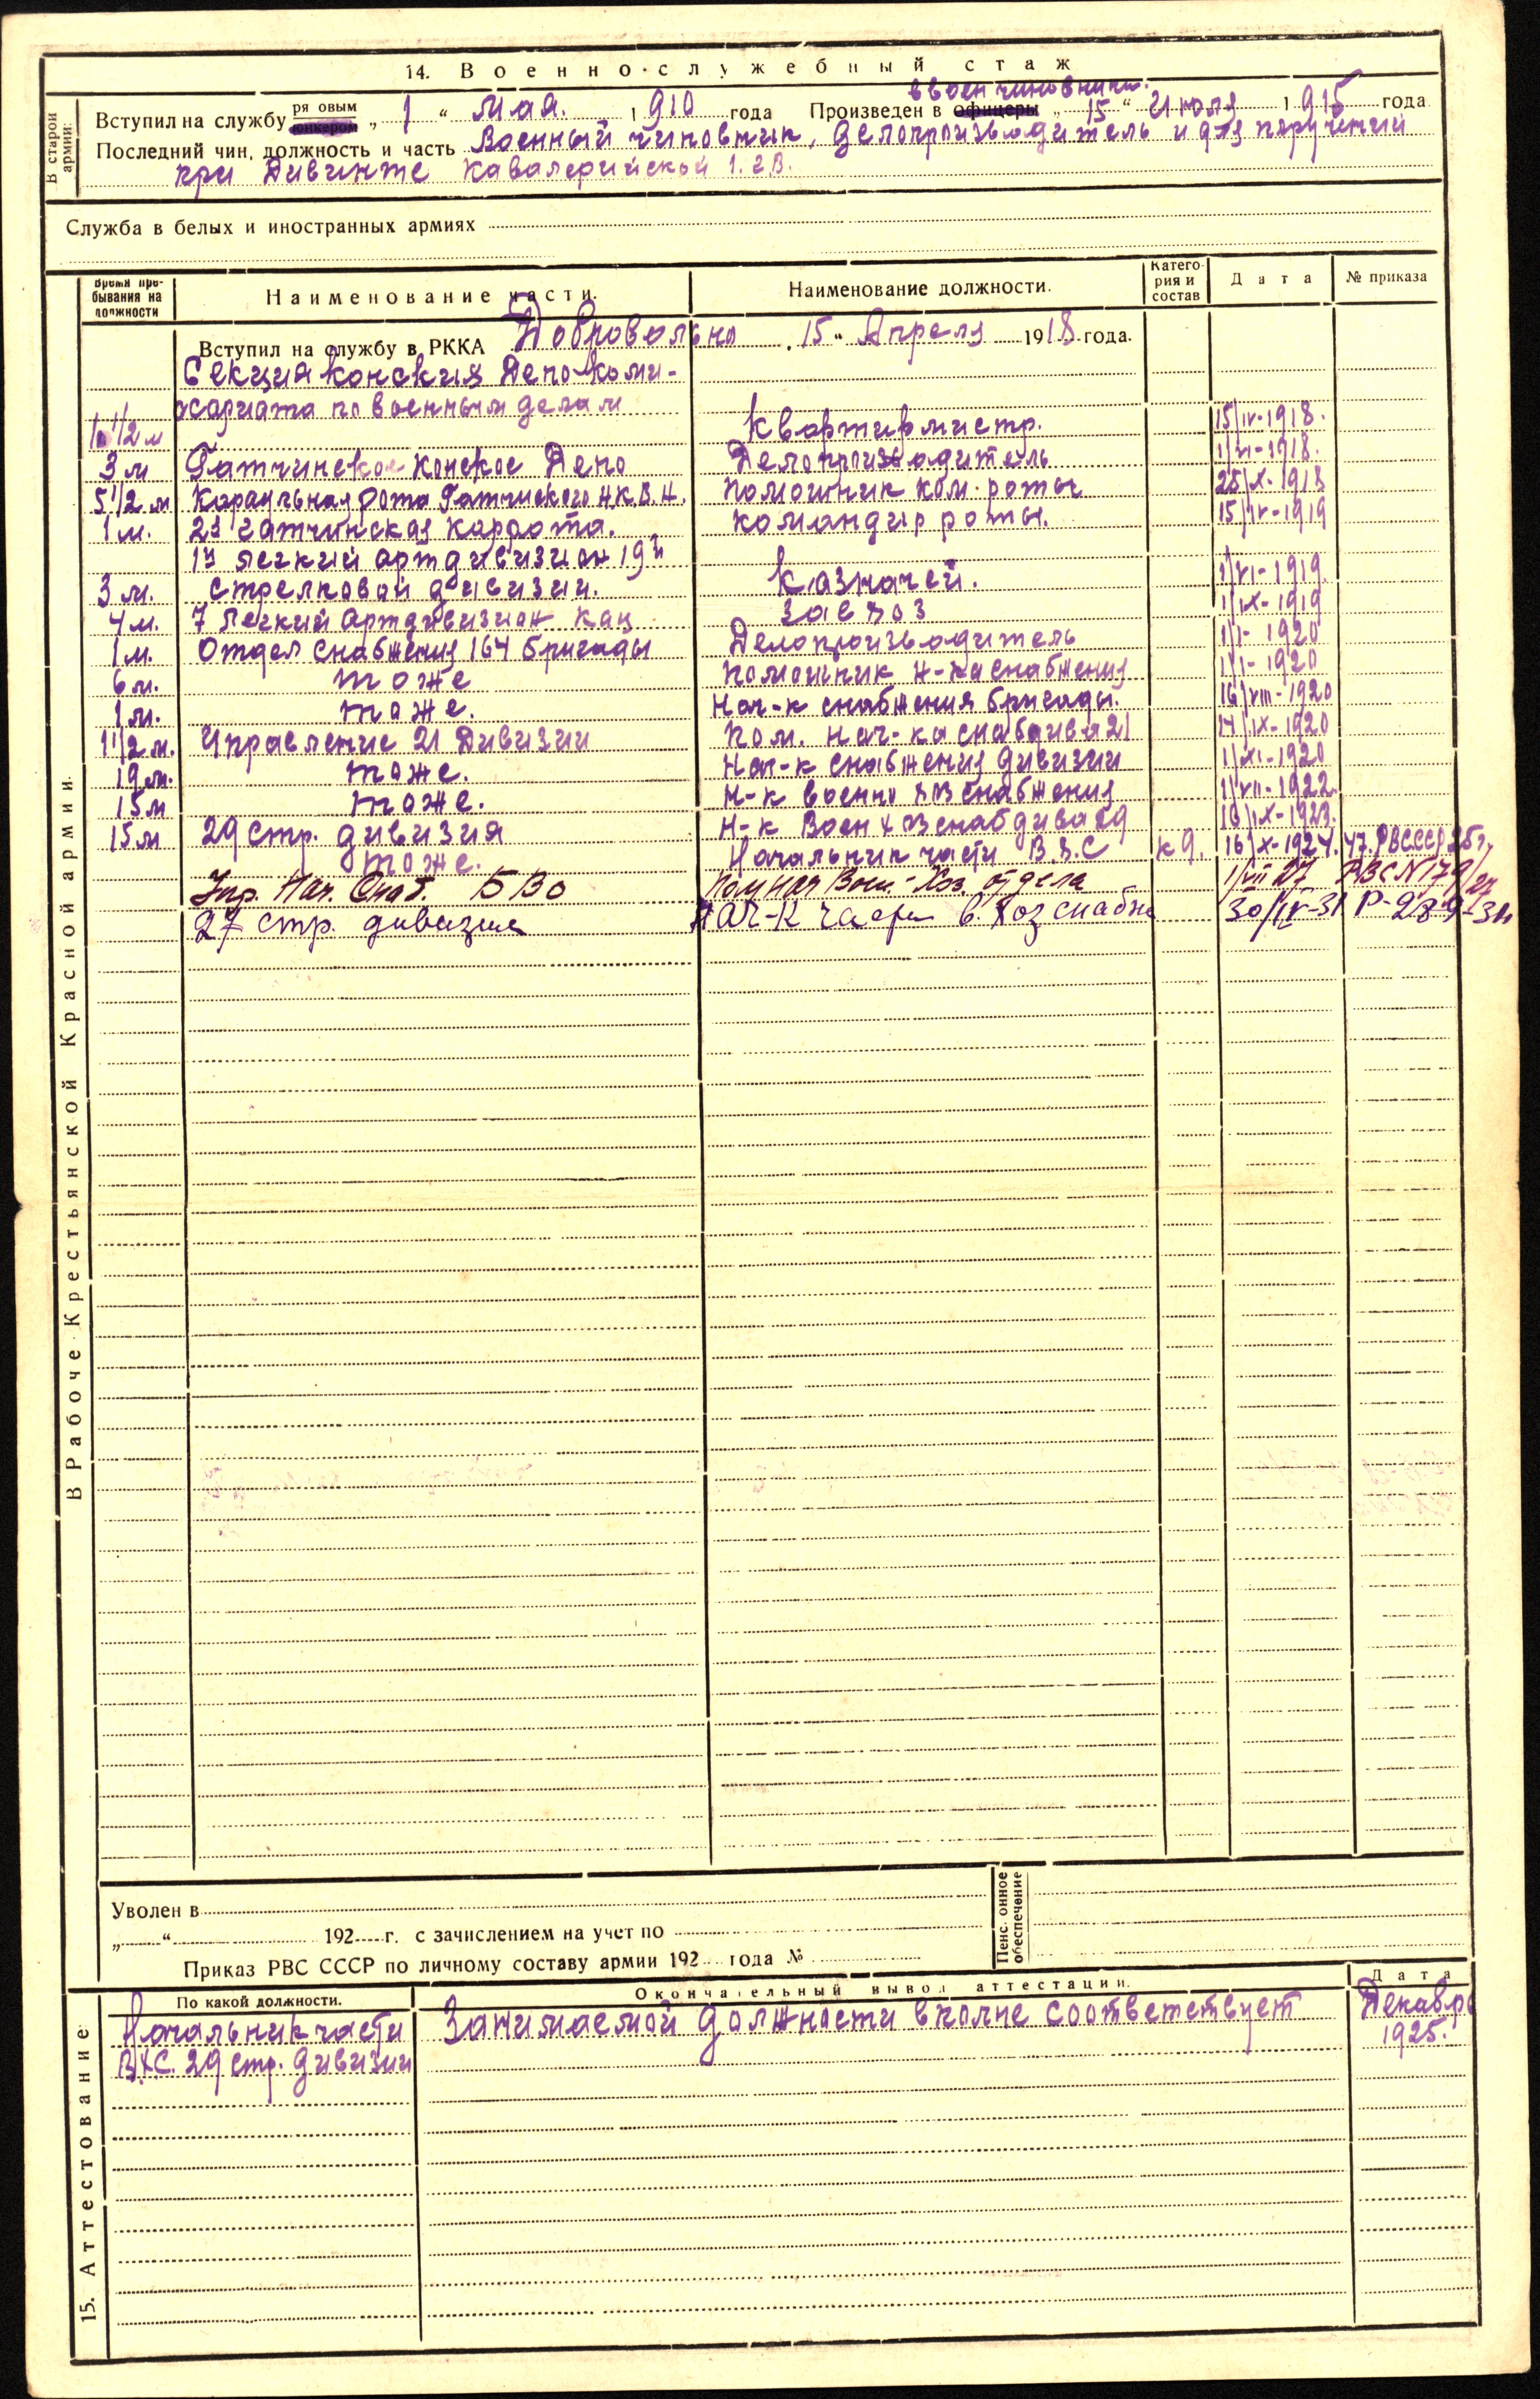 14. Военно-служебный стаж
В старой армии:
в воен чиновники.
Вступил на службу рядовым юнкером „1“ Мая. 1910 года Произведен в офицеры „15“ Июля 1915 года
Последний чин, должность и часть Военный чиновник, Делопроизводитель и для поручений
при Дивинте Кавалерийской
Служба в белых и иностранных армиях
Время пребывания на должности Наименование части. Наименование должности. Категория и состав Дата № приказа
В Рабоче-Крестьянской Красной армии.
Вступил на службу в РККА Добровольно „15“ Апреля 1918 года.
Секция конских Депо Коми-
ссариата по военным делам
1 1/2 м Квартирмистр. 15/IV-1918.
3 м Гатчинское Конское Депо Делопроизводитель 1/VI-1918.
5 1/2 м Караульная рота Гатчинского Н.К.В.Н. Помощник ком. роты 25/X-1918
1 м. 2я Гатчинская Каррота. Командир роты. 15/IV-1919
1й легкий артдивизион 19й
3 м. стрелковой дивизии. Казначей. 1/VI-1919.
4 м. 7 легкий Артдивизион Завхоз 1/IX-1919
1 м. Отдел снабжения 164 бригады Делопроизводитель 1/I-1920
6 м. тоже Помощник Н-ка снабжения 1/I-1920
1 м. тоже. Нач-к снабжения бригады. 16/VIII-1920
1 1/2 м. Управление 21 Дивизии Пом. Нач-ка снабдива 21 14/IX-1920
19 м. тоже. Нач-к снабжения дивизии 1/XI-1920
15 м тоже. Н-к военно хоз снабжения 1/VII-1922.
15 м 29 стр. дивизия Н-к Воен хозснабдива 29 16/IX-1923.
тоже. Начальник части В.Х.С К 9. 16/X-1924. 47. РВСССР 25 г.
Упр. Нач. Снаб. БВО Пом Нач Воен.-Хоз. отдела 1/VII 27 РВС N 179/27
27 стр. дивизия Нач-к части в. хоз снабж 30/IV-31
Уволен в
„ “ 192 г. с зачислением на учет по
Приказ РВС СССР по личному составу армии 192 года №
Пенсионное обеспечение
15. Аттестование
По какой должности. Окончательный вывод аттестации. Дата
Начальник части Занимаемой должности вполне соответствует Декабрь
В.Х.С. 29 стр. дивизии 1925.